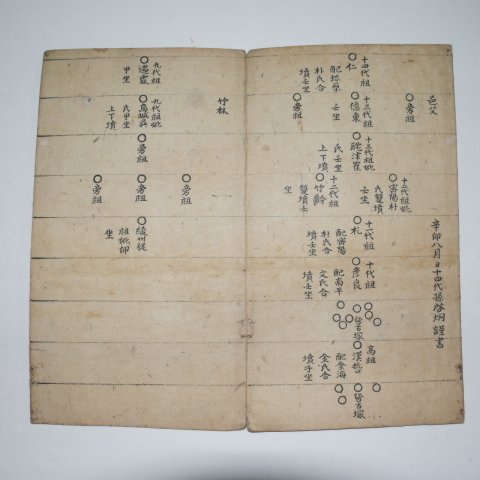 邑父
辛卯八月日十四代孫啓炯謹書
○旁祖
十四代祖
○仁
配珍原
朴氏合
墳壬坐
十三代祖
○億東
壬坐
○旁祖
十三代祖妣
耽津崔
氏壬坐
上下墳
十二代祖妣
○密陽朴
氏雙墳
壬坐
十二代祖
○竹齡
雙墳壬
坐
十一代祖
○札
配密陽
朴氏合
墳壬坐
十代祖
○彦良
配南平
文氏合
墳壬坐
皆古塚
高祖
○漢
配金海
金氏合
墳子坐
○皆古塚
竹林
九代祖
○遇
甲坐
九代祖妣
○高城吳
氏甲坐
上下墳
○旁祖
○旁祖
○旁祖
○旁祖
○綾州從
祖妣卯
坐